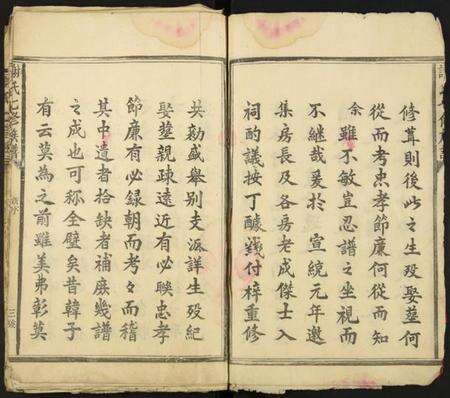 修葺則後此之生殁娶塟何
從而考忠孝節廉何從而知
余雖不敏豈忍譜之坐視而
不継哉爰於 宣統元年邀
集房長及各房老成傑士入
祠酌議按丁醵錢付梓重修
共勷盛舉别支派詳生殁紀
娶塟親疎遠近有必聯忠孝
節廉有必録朝而考夕而稽
其中遺者拾缺者補庶幾譜
之成也可称全璧矣昔韓子
有云莫為之前雖美弗彰莫
氏七修族譜